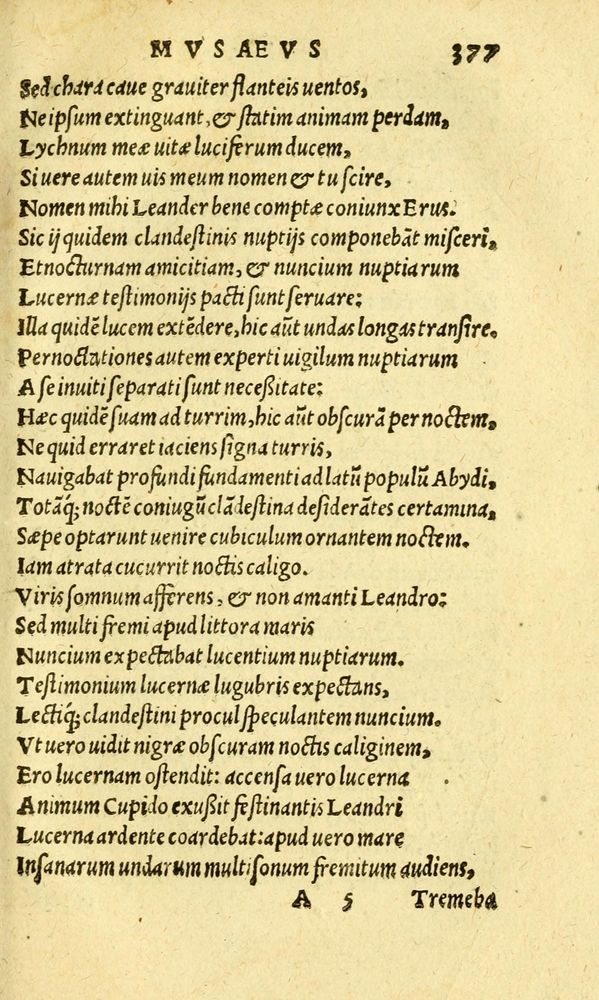 MVSAEVS 377
Sed chara caue grauiter flanteis uentos,
Ne ipsum extinguant, & statim animam perdam,
Lychnum meæ uitæ luciferum ducem,
Si uere autem uis meum nomen & tu scire,
Nomen mihi Leander bene comptæ coniunx Erus.
Sic ij quidem clandestinis nuptijs componebãt misceri,
Et nocturnam amicitiam, & nuncium nuptiarum
Lucernæ testimonijs pacti sunt seruare:
Illa quidẽ lucem extẽdere, hic aũt undas longas transire.
Pernoctationes autem experti uigilum nuptiarum
A se inuiti separati sunt neceßitate:
Hæc quidẽ suam ad turrim, hic aũt obscurã per noctem,
Ne quid erraret iaciens signa turris,
Nauigabat profundi fundamenti ad latũ populũ Abydi,
Totãq́; noctẽ coniugũ clãdestina desiderãtes certamina,
Sæpe optarunt uenire cubiculum ornantem noctem.
Iam atrata cucurrit noctis caligo.
Viris somnum afferens, & non amanti Leandro:
Sed multi fremi apud littora maris
Nuncium expectabat lucentium nuptiarum.
Testimonium lucernæ lugubris expectans,
Lectiq́; clandestini procul speculantem nuncium.
Vt uero uidit nigræ obscuram noctis caliginem,
Ero lucernam ostendit: accensa uero lucerna
Animum Cupido exußit festinantis Leandri
Lucerna ardente coardebat: apud uero mare
Insanarum undarum multisonum fremitum audiens,
A 5 Tremeba